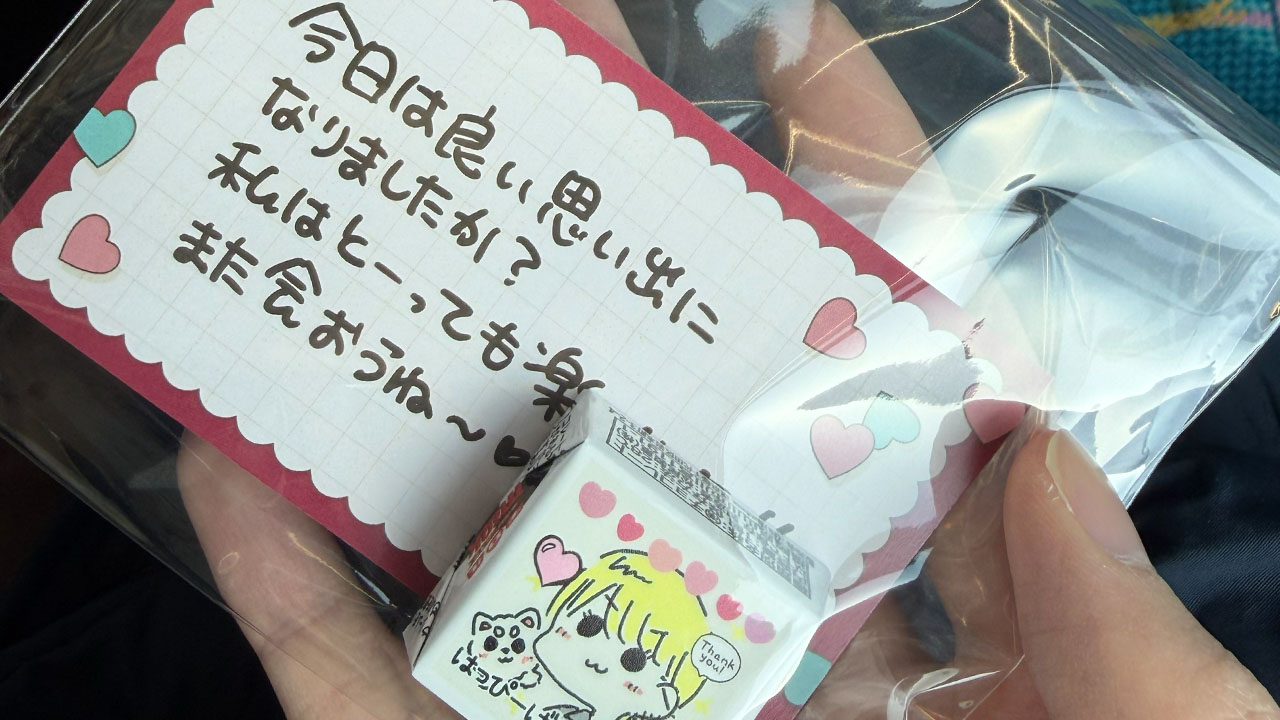 今日は良い思い出に
なりましたか?
私はとーっても楽
また会おうね〜♥
Thank
you!